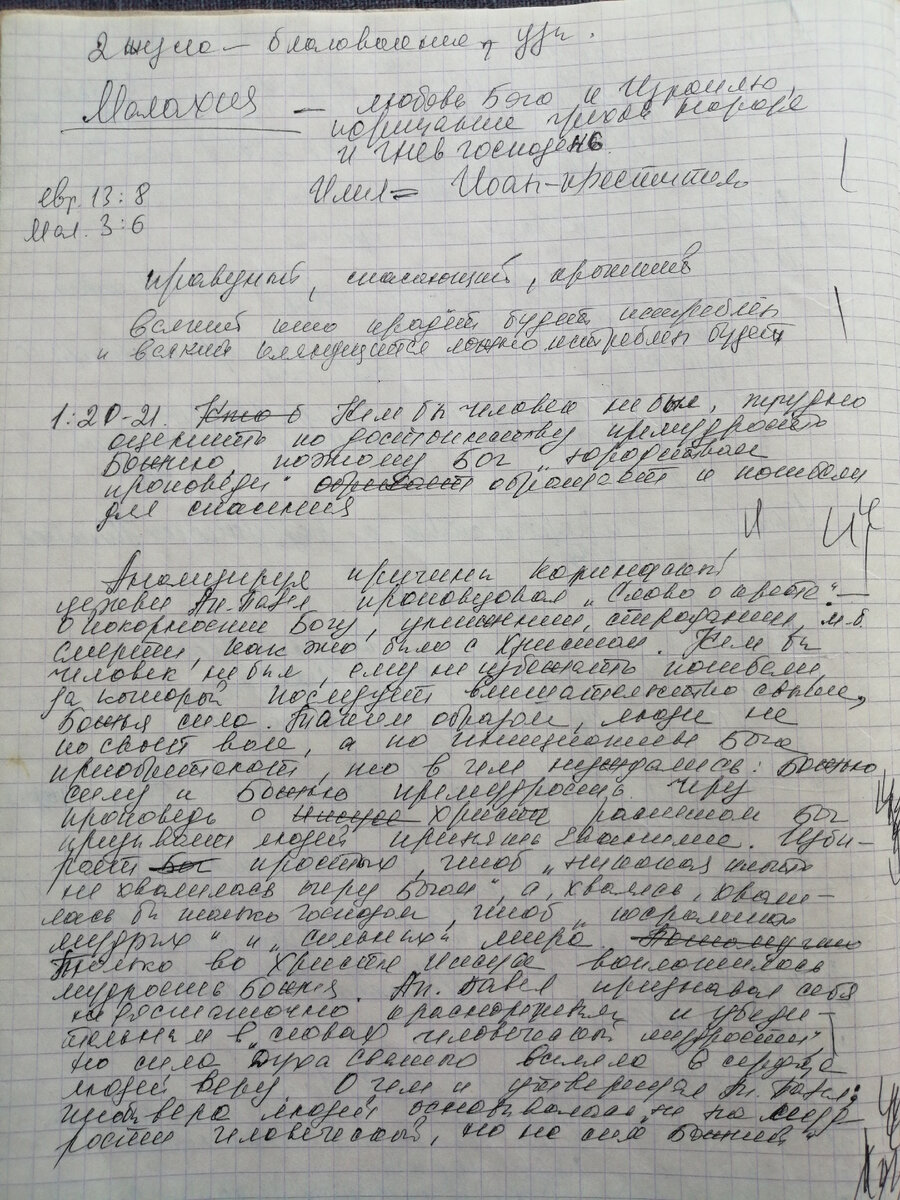 2 чуда – благоволения, узы.
Малахия – любовь Бога к Израилю,
порицание грехов народа
и гнев господень.
Евр. 13:8
Мал. 3:6
Илия = Иоан-креститель
праведный, спасающий, кроткий
всякий кто крадёт будет истреблён
и всякий клянущийся ложно истреблен будет
1:20-21. Кто б Кем бы человек не был, трудно
оценить по достоинству премудрость
Божию, поэтому Бог „юродством
проповеди“ обращает и погибели
для спасения
И
Анализируя причины коринфской
церкви Ап. Павел проповедовал „Слово о кресте“ –
о покорности Богу, унижении, страдании, м.б.
смерти, как это было с Христом. Кем бы
человек не был, ему не избежать погибели
за которой последует вмешательство свыше,
Божья сила. Таким образом, люди не
по своей воле, а по инициативе Бога
приобретают, то в чем нуждались: Божью
силу и Божью премудрость. Через
проповедь о Иисусе Христе распятом Бог
призывает людей принять спасение. Изби-
рает Бог простых, чтоб „никакая плоть
не хвалилась перед Богом“, а, хвалясь, хвали-
лась бы только Господом, чтоб „посрамить
мудрых“ и „сильных“ мира. Потому что
Только во Христе Иисусе воплотилась
мудрость Божия. Ап. Павел признавал себя
недостаточно красноречивым и убеди-
тельным в „словах человеческой мудрости“,
но сила Духа Святого вселяла в сердца
людей веру. О чем и утверждал Ап. Павел:
чтобы вера людей основывалась „не на муд-
рости человеческой, но на силе Божией“